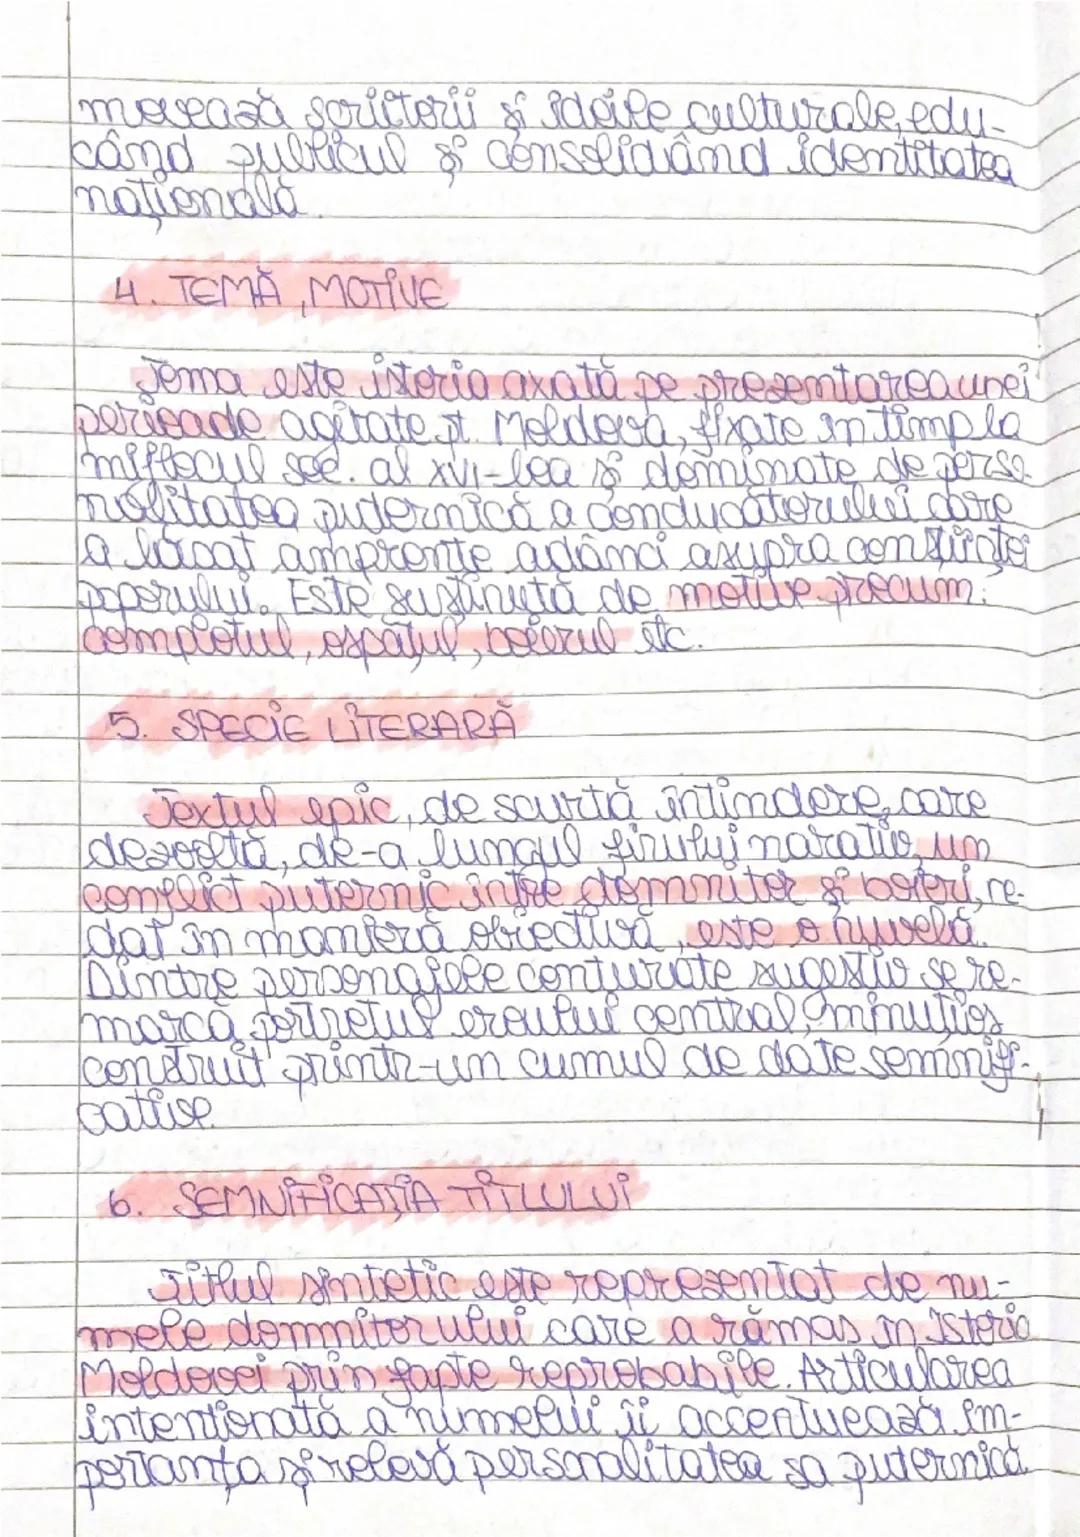 movează scriitorii și ideile culturale, edu-
când publicul și consolidând identitatea
națională.
4. TEMĂ, MOTIVE
Tema este istoria axată pe prezentarea unei
perioade agitate pt. Moldova, fixate în timp la
mijlocul sec. al XVI-lea și dominate de perso-
nalitatea puternică a conducătorului care
a lăsat amprente adânci asupra conștiinței
poporului. Este susținută de motive precum:
complotul, ospățul, boierul etc.
5. SPECIE LITERARĂ
Textul epic, de scurtă întindere, care
dezvoltă, de-a lungul firului narativ, un
conflict puternic între domnitor și boieri, re-
dat în manieră obiectivă, este o nuvelă.
Dintre personajele conturate sugestiv se re-
marcă portretul eroului central, minuțios
construit printr-un cumul de date semnifi-
cative.
6. SEMNIFICAȚIA TITLULUI
Titlul sintetic este reprezentat de nu-
mele domnitorului care a rămas în istoria
Moldovei prin fapte reprobabile. Articularea
intenționată a numelui îi accentuează im-
portanța și relevă personalitatea sa puternică